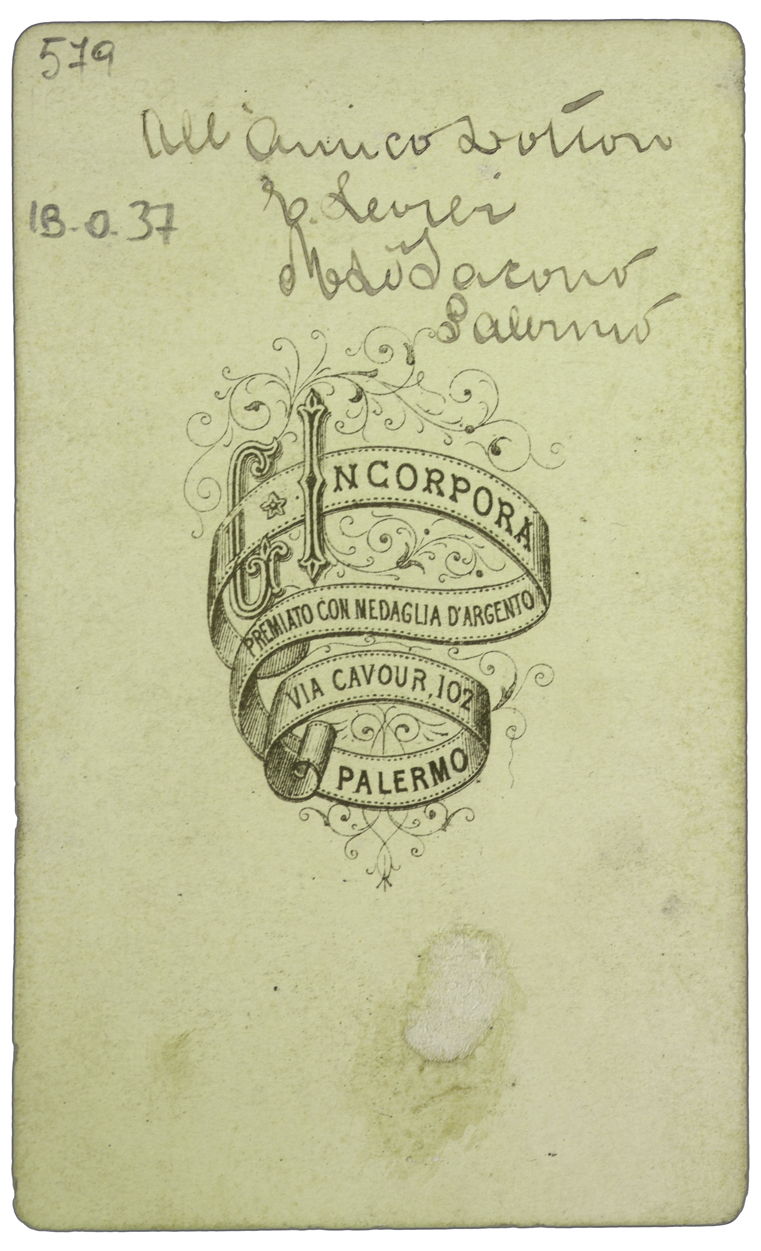 579
All' Amico Dottore
18.0.37
Palermo
G. INCORPORA
PREMIATO CON MEDAGLIA D'ARGENTO
VIA CAVOUR, 102
PALERMO